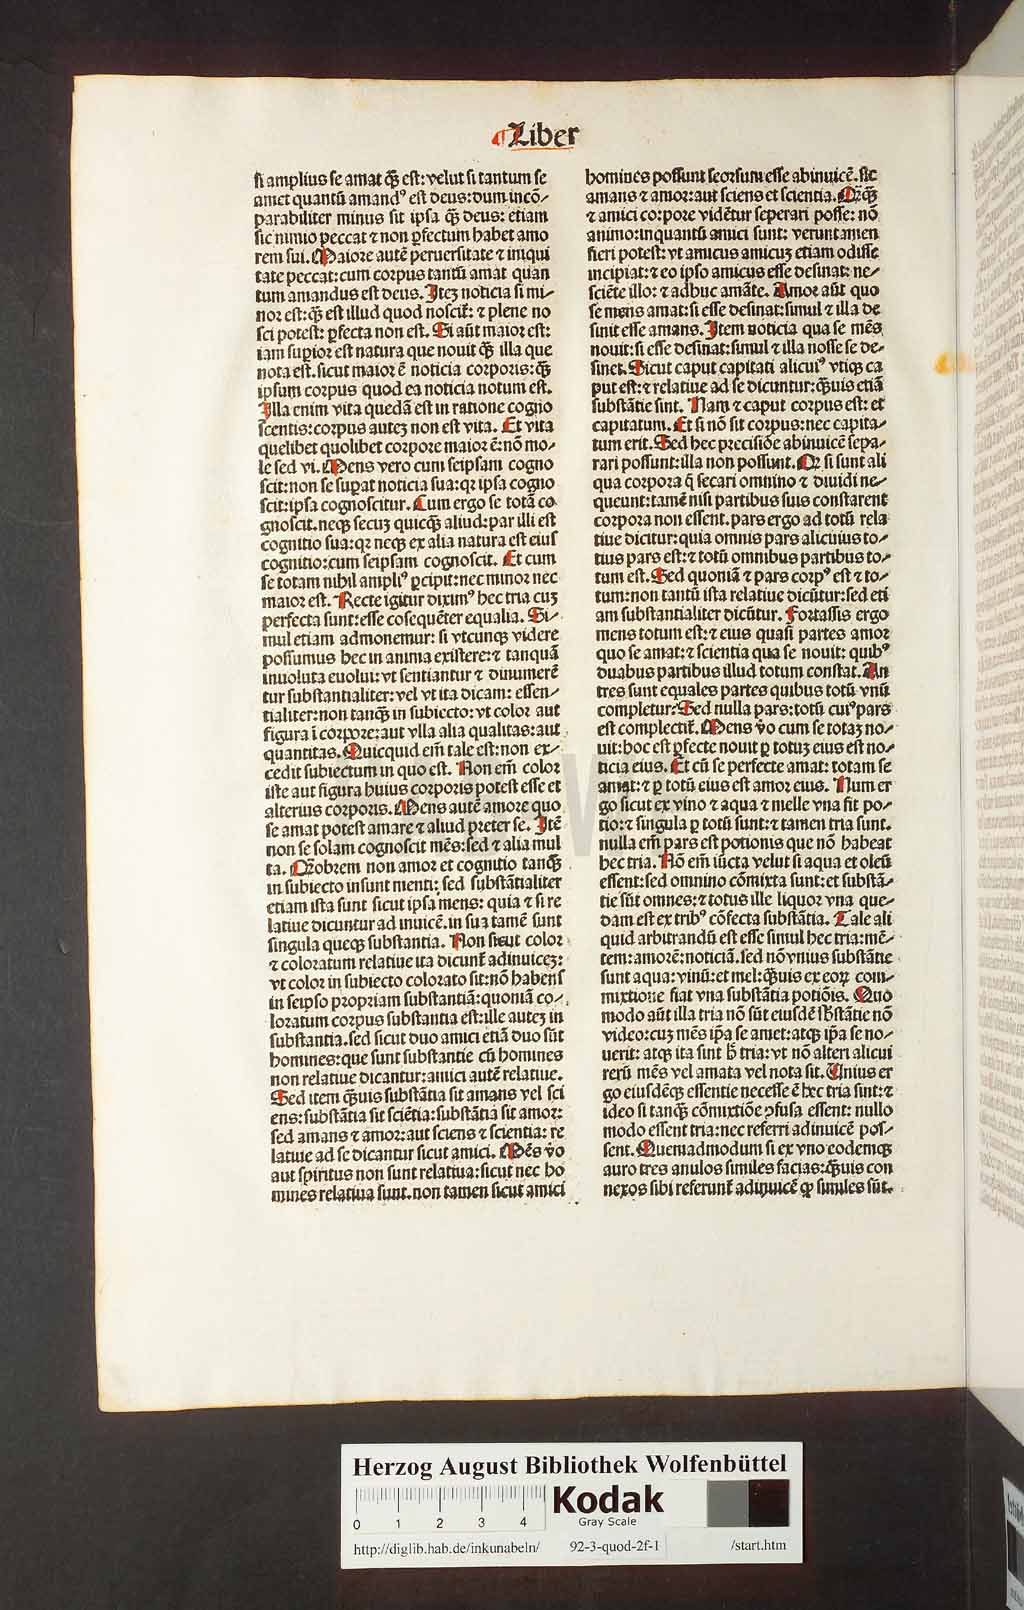 ¶Liber
si amplius se amat q̄ȝ est: velut si tantum se
amet quantū amandꝰ est deus: dum incō/
parabiliter minus sit ipsa q̄ȝ deus: etiam
sic nimio peccat ⁊ non ꝑfectum habet amo
rem sui. Maiore autē peruersitate ⁊ iniqui
tate peccat: cum corpus tantū amat quan
tum amandus est deus. Iteȝ noticia si mi/
nor est: q̄ȝ est illud quod noscit̄: ⁊ plene no
sci potest: ꝑfecta non est. Si aūt maior est:
iam suꝑior est natura que nouit q̄ȝ illa que
nota est. sicut maior ē noticia corporis: q̄ȝ
ipsum corpus quod ea noticia notum est.
Illa enim vita quedā est in ratione cogno
scentis: corpus auteȝ non est vita. Et vita
quelibet quolibet corpore maior ē: nō mo/
le sed vi. Mens vero cum seipsam cogno
scit: non se suꝑat noticia sua: qꝛ ipsa cogno
scit: ipsa cognoscitur. Cum ergo se totā co
gnoscit. neqȝ secuȝ quicq̄ȝ aliud: par illi est
cognitio sua: qꝛ neqȝ ex alia natura est eius
cognitio: cum seipsam cognoscit. Et cum
se totam nihil ampliꝰ ꝑcipit: nec minor nec
maior est. Recte igitur diximꝰ hec tria cuȝ
perfecta sunt: esse cōsequēter equalia. Si/
mul etiam admonemur: si vtcunqȝ videre
possumus hec in anima existere: ⁊ tanquā
inuoluta euolui: vt sentiantur ⁊ dinumerē
tur substantialiter: vel vt ita dicam: essen/
tialiter: non tanq̄ȝ in subiecto: vt color aut
figura ī corpore: aut vlla alia qualitas: aut
quantitas. Quicquid em̄ tale est: non ex/
cedit subiectum in quo est. Non em̄ color
iste aut figura huius corporis potest esse et
alterius corporis. Mens autē amore quo
se amat potest amare ⁊ aliud preter se. Itē
non se solam cognoscit mēs: sed ⁊ alia mul
ta. Qꝛobrem non amor et cognitio tanq̄ȝ
in subiecto insunt menti: sed substātialiter
etiam ista sunt sicut ipsa mens: quia ⁊ si re
latiue dicuntur ad inuicē. in sua tamē sunt
singula queqȝ substantia. Non sicut color
⁊ coloratum relatiue ita dicunt̄ adinuiceȝ:
vt color in subiecto colorato sit: nō habens
in seipso propriam substantiā: quoniā co/
loratum corpus substantia est: ille auteȝ in
substantia. sed sicut duo amici etiā duo sūt
homines: que sunt substantie cū homines
non relatiue dicantur: amici autē relatiue.
Sed item q̄ȝuis substātia sit amans vel sci
ens: substātia sit sciētia: substātia sit amor:
sed amans ⁊ amor: aut sciens ⁊ scientia: re
latiue ad se dicantur sicut amici. Mēs v̄o
aut spiritus non sunt relatiua: sicut nec ho
mines relatiua sunt. non tamen sicut amici
homines possunt seorsum esse abinuicē. sic
amans ⁊ amor: aut sciens et scientia. Qꝛq̄ȝ
⁊ amici corpore vidētur seperari posse: nō
animo: inquantū amici sunt: veruntamen
fieri potest: vt amicus amicuȝ etiam odisse
incipiat: ⁊ eo ipso amicus esse desinat: ne/
sciēte illo: ⁊ adhuc amāte. Amor aūt quo
se mens amat: si esse desinat: simul ⁊ illa de
sinit esse amans. Item noticia qua se mēs
nouit: si esse desinat: simul ⁊ illa nosse se de/
sinet. Sicut caput capitati alicuiꝰ vtiqȝ ca
put est: ⁊ relatiue ad se dicuntur: q̄ȝuis etiā
substātie sint. Nam ⁊ caput corpus est: et
capitatum. Et si nō sit corpus: nec capita/
tum erit. Sed hec precisiōe abinuicē sepa/
rari possunt: illa non possunt. Qꝛ si sunt ali
qua corpora q̄ secari omnino ⁊ diuidi ne/
queunt: tamē nisi partibus suis constarent
corpora non essent. pars ergo ad totū rela
tiue dicitur: quia omnis pars alicuius to/
tius pars est: ⁊ totū omnibus partibus to/
tum est. Sed quoniā ⁊ pars corpꝰ est ⁊ to/
tum: non tantū ista relatiue dicūtur: sed eti
am substantialiter dicūtur. Fortassis ergo
mens totum est: ⁊ eius quasi partes amor
quo se amat: ⁊ scientia qua se nouit: quibꝰ
duabus partibus illud totum constat. An
tres sunt equales partes quibus totū vnū
completur: Sed nulla pars: totū cuiꝰ pars
est complectit̄. Mens v̄o cum se totaȝ no/
uit: hoc est ꝑfecte nouit ꝑ totuȝ eius est no/
ticia eius. Et cū se perfecte amat: totam se
amat: ⁊ ꝑ totū eius est amor eius. Num er
go sicut ex vino ⁊ aqua ⁊ melle vna fit po/
tio: ⁊ singula ꝑ totū sunt: ⁊ tamen tria sunt.
nulla em̄ pars est potionis que nō habeat
hec tria. Nō em̄ iūcta velut si aqua et oleū
essent: sed omnino cōmixta sunt: et substā/
tie sūt omnes: ⁊ totus ille liquor vna que/
dam est ex tribꝰ cōfecta substātia. Tale ali
quid arbitrandū est esse simul hec tria: mē/
tem: amorē: noticiā. sed nō vnius substātie
sunt aqua: vinū: et mel: q̄ȝuis ex eoꝝ com/
mixtione fiat vna substātia potiōis. Quo
modo aūt illa tria nō sūt eiusdē sb̄stātie nō
video: cuȝ mēs ip̄a se amet: atqȝ ip̄a se no/
uerit: atqȝ ita sint h̄ tria: vt nō alteri alicui
rerū mēs vel amata vel nota sit. Unius er
go eiusdēqȝ essentie necesse ē hec tria sint: ⁊
ideo si tanq̄ȝ cōmixtiōe ꝯfusa essent: nullo
modo essent tria: nec referri adinuicē pos/
sent. Quemadmodum si ex vno eodemqȝ
auro tres anulos similes facias: q̄ȝuis con
nexos sibi referunt̄ adinuicē ꝙ similes sūt.
Herzog August Bibliothek Wolfenbüttel
0 1 2 3 4
Kodak
Gray Scale
http://diglib.hab.de/inkunabeln/ 92-3-quod-2f-1 /start.htm